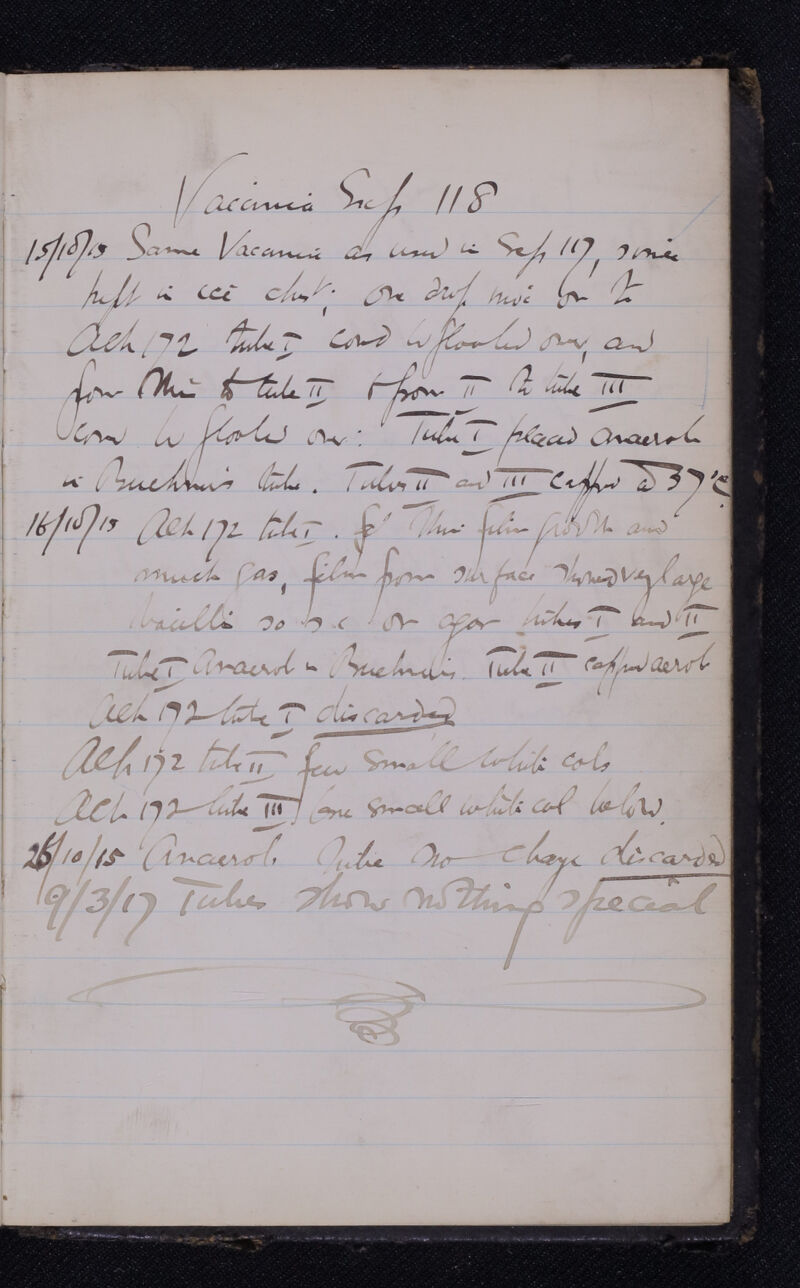 Vaccinia Exp 118
15/10/15 Same Vaccinia as used in Exp 117, since
kept in ice chest; one drop more on to
Ach 172 tube I cond w flooded over, and
from this to tube II & from II to tube III
cond w flooded over. Tube I placed anaerob
in Buchner's tube. Tubes II and III capped at 37°C.
16/10/15 Ach 172 tube I. thin film growth and
much gas, film from surface showed very large
bacilli so s c on agar tubes I and II
Tube I Anaerob in Buchner's. Tube II capped aerob
Ach 172 tube I discarded
Ach 172 tube II few small white cols
Ach 172 tube III one small white col below.
26/10/15 Anaerob tube no change discarded
9/3/17 Tubes show nothing special